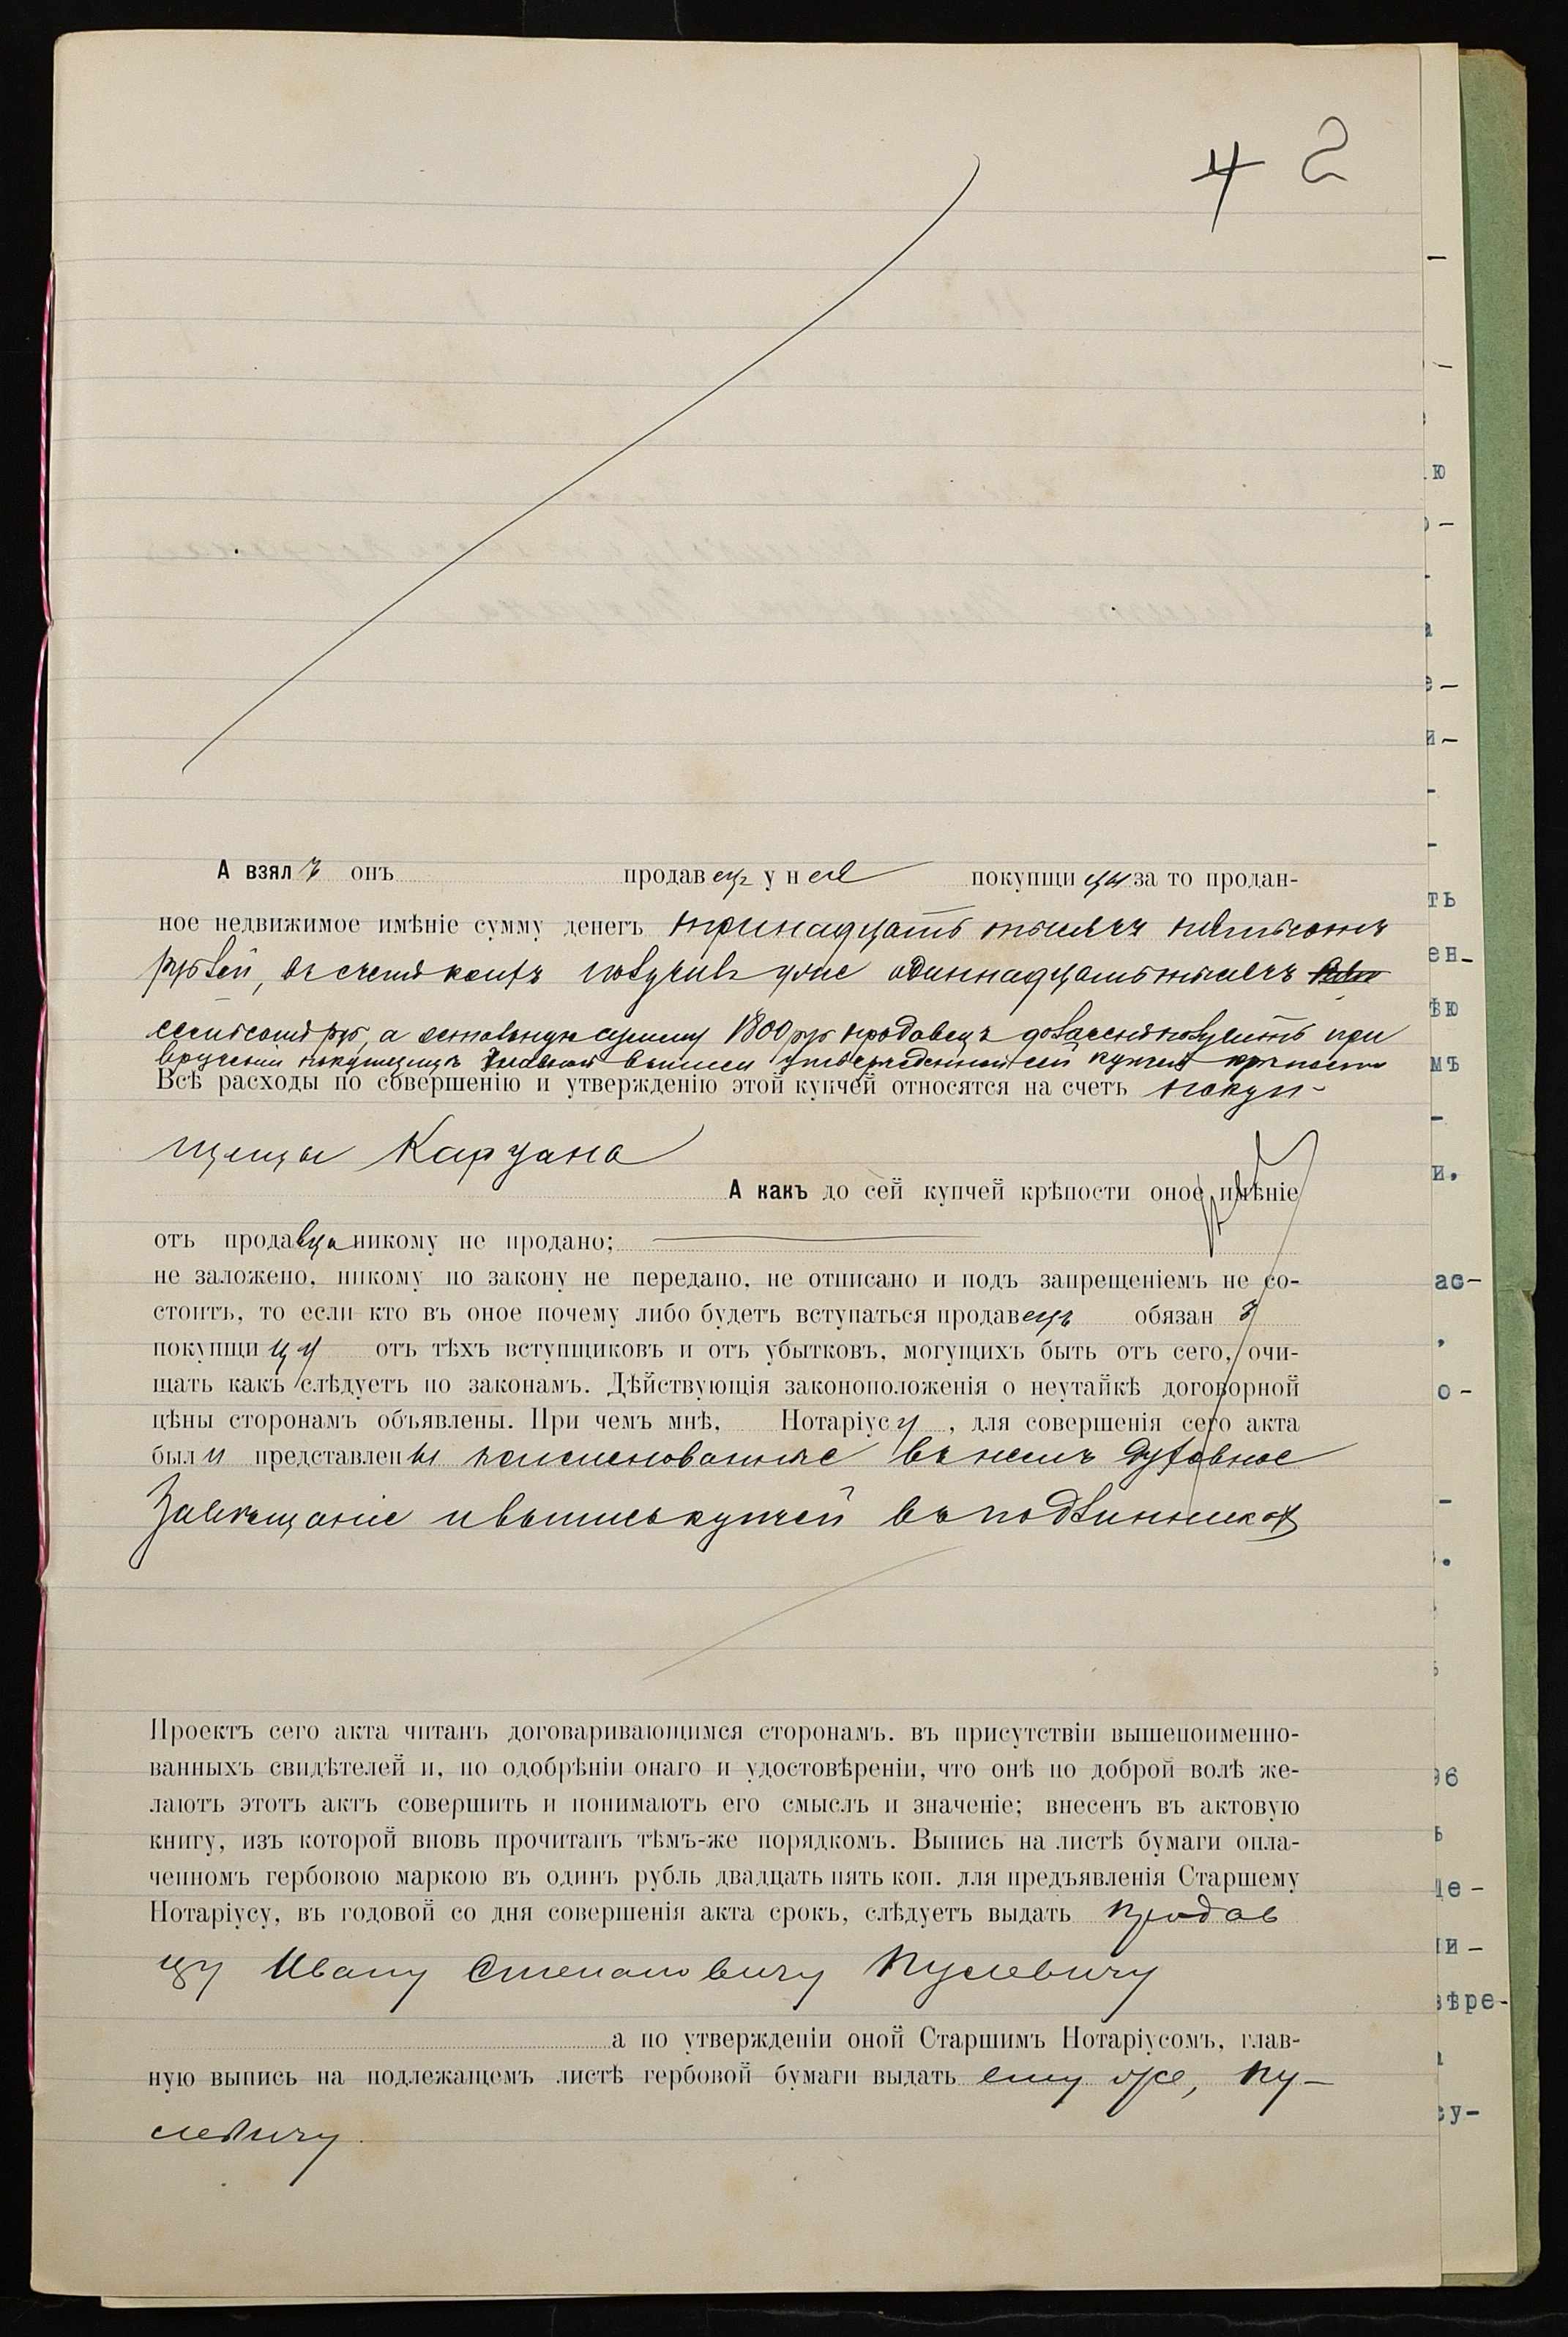 4 2
А взялъ онъ продавецъ у нея покупщицы за то продан-
ное недвижимое имѣніе сумму денегъ тринадцать тысячъ пятьсотъ
рублей, въ счетъ коихъ получивъ уже одиннадцать тысячъ
семьсотъ руб, а остальную сумму 1800 руб продавецъ долженъ получить при
врученіи покупщицѣ главной выписи утвержденной сей купчей крѣпости
Всѣ расходы по совершенію и утвержденію этой купчей относятся на счетъ покуп-
щицы
А какъ до сей купчей крѣпости оное имѣніе
отъ продавца никому не продано;
не заложено, никому по закону не передано, не отписано и подъ запрещеніемъ не со-
стоитъ, то если кто въ оное почему либо будетъ вступаться продавецъ обязанъ
покупщицу отъ тѣхъ вступщиковъ и отъ убытковъ, могущихъ быть отъ сего, очи-
щать какъ слѣдуетъ по законамъ. Дѣйствующія законоположенія о неутайкѣ договорной
цѣны сторонамъ объявлены. При чемъ мнѣ, Нотаріусу, для совершенія сего акта
были представлены поименованные въ немъ духовное
завѣщаніе и выпись купчей въ подлинникѣ
Проектъ сего акта читанъ договаривающимся сторонамъ. въ присутствіи вышепоимено-
ванныхъ свидѣтелей и, по одобрѣніи онаго и удостовѣреніи, что онѣ по доброй волѣ же-
лаютъ этотъ актъ совершить и понимаютъ его смыслъ и значеніе; внесенъ въ актовую
книгу, изъ которой вновь прочитанъ тѣмъ-же порядкомъ. Выпись на листѣ бумаги опла-
ченномъ гербовою маркою въ одинъ рубль двадцать пять коп. для предъявленія Старшему
Нотаріусу, въ годовой со дня совершенія акта срокъ, слѣдуетъ выдать продав
цу Ивану Степановичу Пуслевичу
а по утвержденіи оной Старшимъ Нотаріусомъ, глав-
ную выпись на подлежащемъ листѣ гербовой бумаги выдать ему же, Пу-
слевичу.